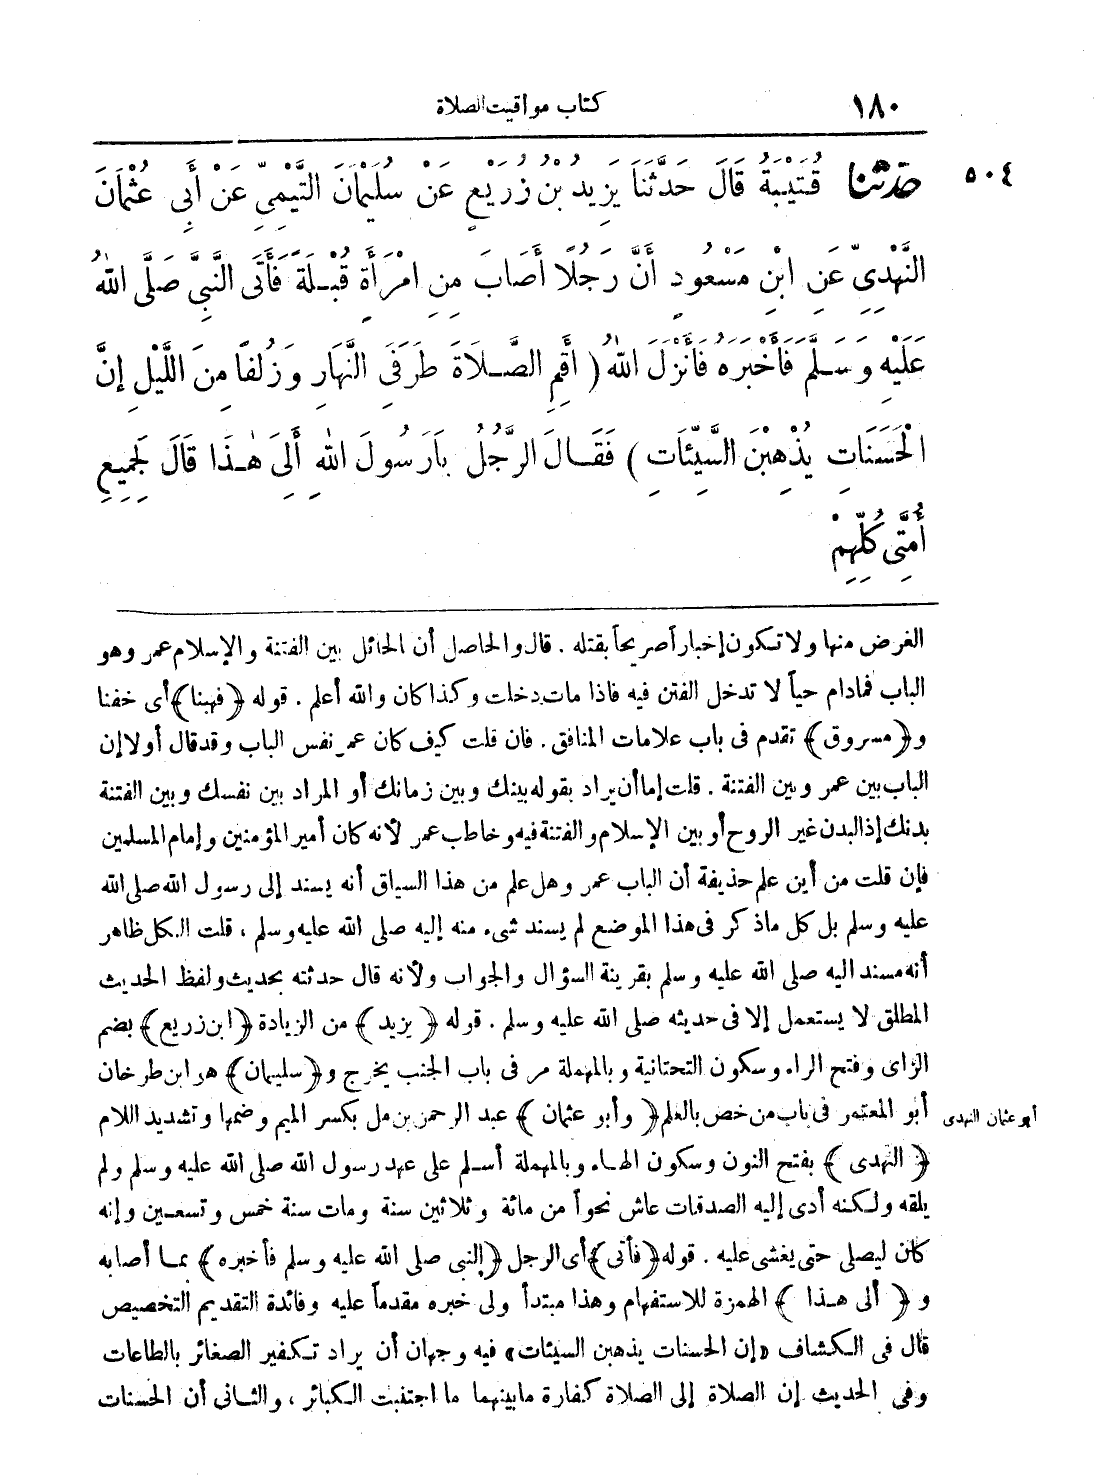 ١٨٠ كتاب مواقيت الصلاة
٥٠٤ حَدَّثَنَا قُتَيْبَةُ قَالَ حَدَّثَنَا يَزِيدُ بْنُ زُرَيْعٍ عَنْ سُلَيْمَانَ التَّيْمِيِّ عَنْ أَبِي عُثْمَانَ
النَّهْدِيِّ عَنِ ابْنِ مَسْعُودٍ أَنَّ رَجُلًا أَصَابَ مِنِ امْرَأَةٍ قُبْلَةً فَأَتَى النَّبِيَّ صَلَّى اللهُ
عَلَيْهِ وَسَلَّمَ فَأَخْبَرَهُ فَأَنْزَلَ اللهُ ( أَقِمِ الصَّلَاةَ طَرَفَيِ النَّهَارِ وَزُلَفًا مِنَ اللَّيْلِ إِنَّ
الْحَسَنَاتِ يُذْهِبْنَ السَّيِّئَاتِ ) فَقَالَ الرَّجُلُ يَارَسُولَ اللهِ أَلِيَ هٰذَا قَالَ لِجَمِيعِ
أُمَّتِي كُلِّهِمْ
الغرض منها ولا تكون إخباراً صريحاً بقتله . قال والحاصل أن الحائل بين الفتنة والإسلام عمر وهو
الباب فمادام حياً لا تدخل الفتن فيه فاذا مات دخلت وكذا كان والله أعلم . قوله ﴿فهبنا﴾ أى خفنا
و﴿مسروق﴾ تقدم فى باب علامات المنافق . فان قلت كيف كان عمر نفس الباب وقد قال أولا إن
الباب بين عمر وبين الفتنة . قلت إما أن يراد بقوله بينك وبين زمانك أو المراد بين نفسك وبين الفتنة
بدنك إذ البدن غير الروح أو بين الإسلام والفتنة فيه وخاطب عمر لأنه كان أمير المؤمنين وإمام المسلمين
فإن قلت من أين علم حذيفة أن الباب عمر وهل علم من هذا السياق أنه يسند إلى رسول الله صلى الله
عليه وسلم بل كل ماذكر فى هذا الموضع لم يسند شىء منه إليه صلى الله عليه وسلم ، قلت الكل ظاهر
أنه مسند اليه صلى الله عليه وسلم بقرينة السؤال والجواب ولأنه قال حدثته بحديث ولفظ الحديث
المطلق لا يستعمل إلا فى حديثه صلى الله عليه وسلم . قوله ﴿ يزيد ﴾ من الزيادة ﴿ ابن زريع ﴾ بضم
الزاى وفتح الراء وسكون التحتانية وبالمهملة مر فى باب الجنب يخرج و﴿ سليمان ﴾ هو ابن طرخان
أبو المعتمر فى باب من خص بالعلم ﴿ وأبو عثمان ﴾ عبد الرحمن بن مل بكسر الميم وضمها وتشديد اللام
أبو عثمان النهدى
﴿ النهدى ﴾ بفتح النون وسكون الهاء وبالمهملة أسلم على عهد رسول الله صلى الله عليه وسلم ولم
يلقه ولكنه أدى إليه الصدقات عاش نحواً من مائة وثلاثين سنة ومات سنة خمس وتسعين وإنه
كان ليصلى حتى يغشى عليه . قوله ﴿ فأتى ﴾ أى الرجل ﴿ النبى صلى الله عليه وسلم فأخبره ﴾ بما أصابه
و ﴿ ألى هذا ﴾ الهمزة للاستفهام وهذا مبتدأ ولى خبره مقدماً عليه وفائدة التقديم التخصيص
قال فى الكشاف «إن الحسنات يذهبن السيئات» فيه وجهان أن يراد تكفير الصغائر بالطاعات
وفى الحديث إن الصلاة إلى الصلاة كفارة مابينهما ما اجتنبت الكبائر ، والثانى أن الحسنات